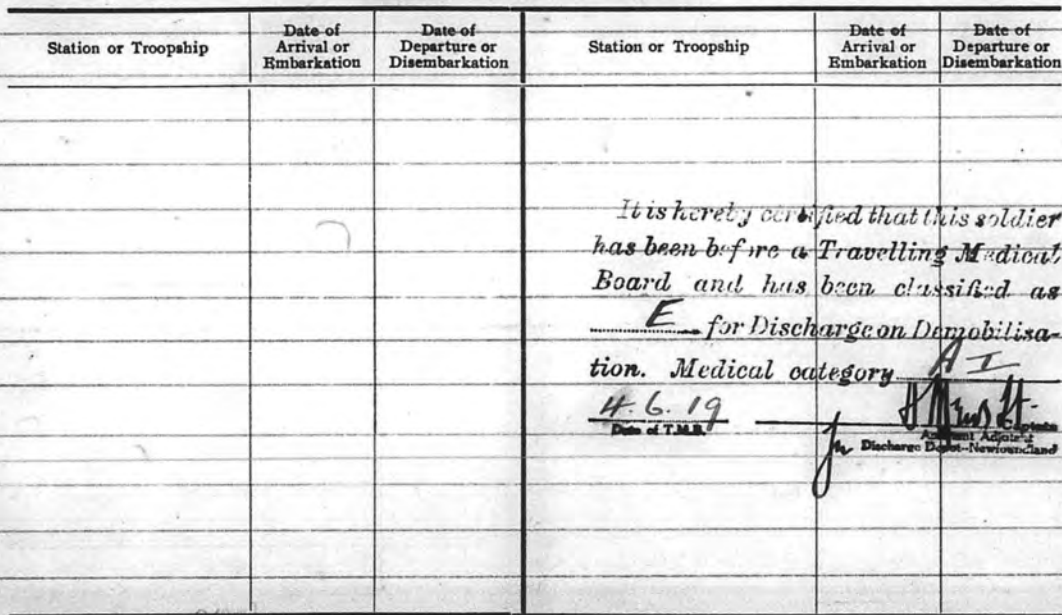 Station or Troopship
Date of Arrival or Embarkation
Date of Departure or Disembarkation
Station or Troopship
Date of Arrival or Embarkation
Date of Departure or Disembarkation
It is hereby certified that this soldier
has been before a Travelling Medical
Board and has been classified as
E for Discharge on Demobilisa-
tion. Medical category A I
4.6.19
Date of T.M.B.
Captain
Assistant Adjutant
Discharge Depot--Newfoundland